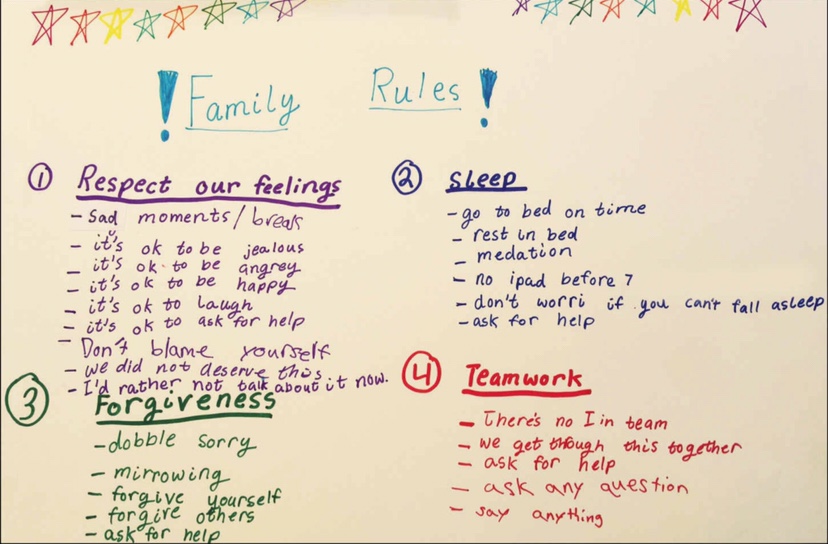 ! Family Rules !
① Respect our feelings
- Sad moments/break
- it's ok to be jealous
- it's ok to be angrey
- it's ok to be happy
- it's ok to laugh
- it's ok to ask for help
- Don't blame yourself
- we did not deserve this
- I'd rather not talk about it now.
② Sleep
- go to bed on time
- rest in bed
- medation
- no ipad before 7
- don't worri if you can't fall asleep
- ask for help
③ Forgiveness
- dobble sorry
- mirrowing
- forgive yourself
- forgive others
- ask for help
④ Teamwork
- There's no I in team
- we get though this together
- ask for help
- ask any question
- say anything